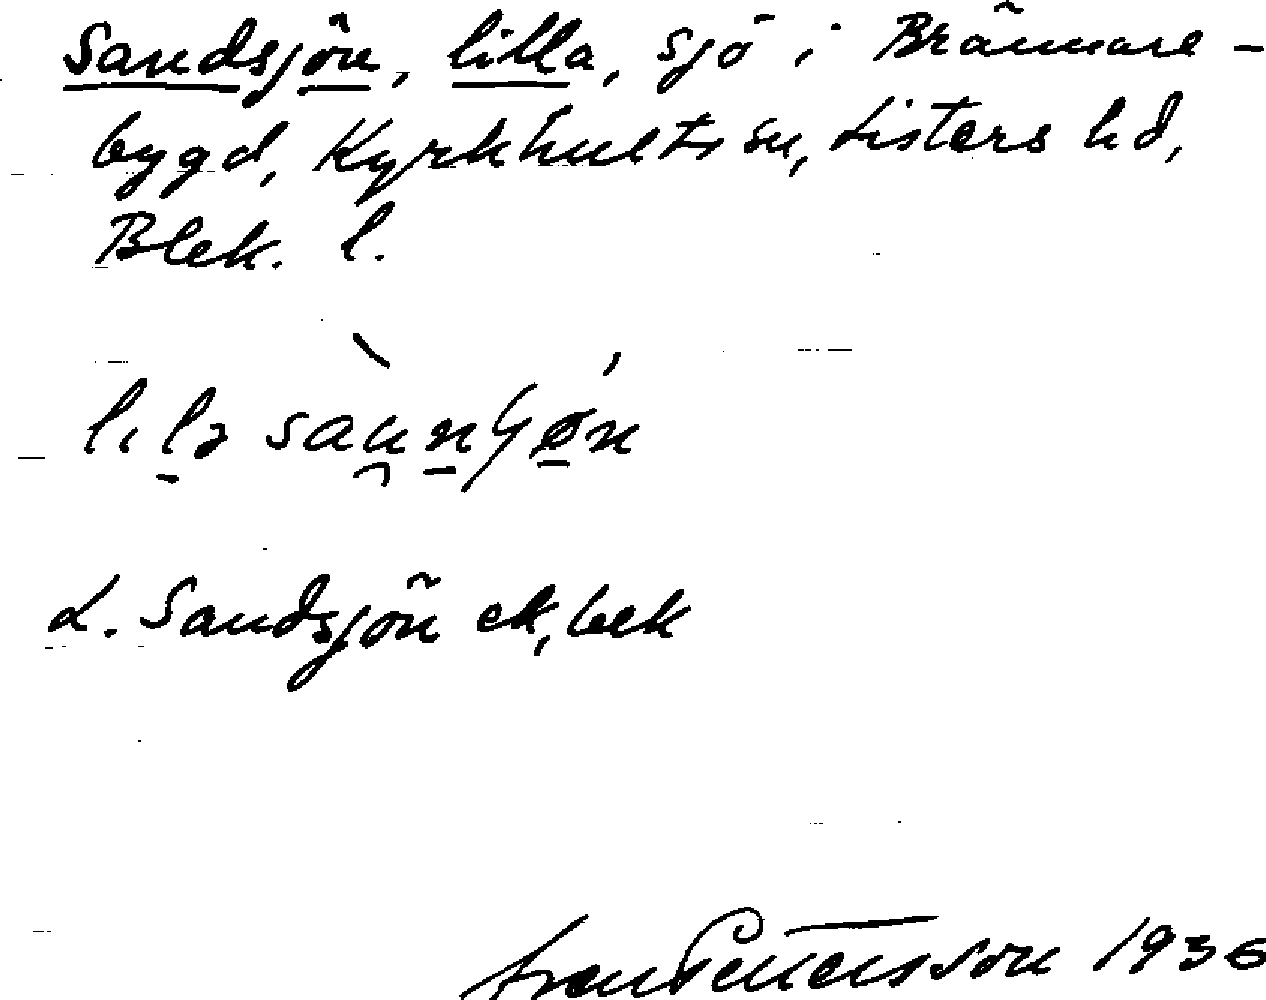 Sandsjön, lilla, sjö i Brännare-
bygd, Kyrkhults sn, Listers hd,
Blek. l.
L. Sandsjön ek, bek
Pettersson 1936